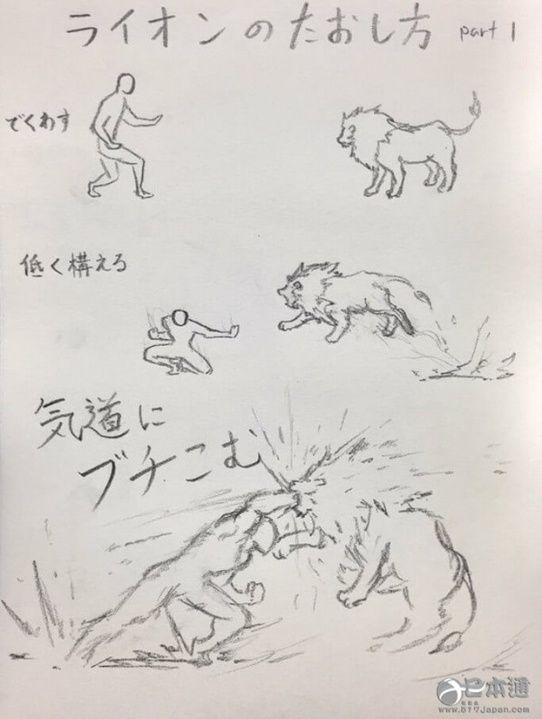 ライオンのたおし方 part 1
でくわす
低く構える
気道に
ブチこむ
日本通
www.517japan.com